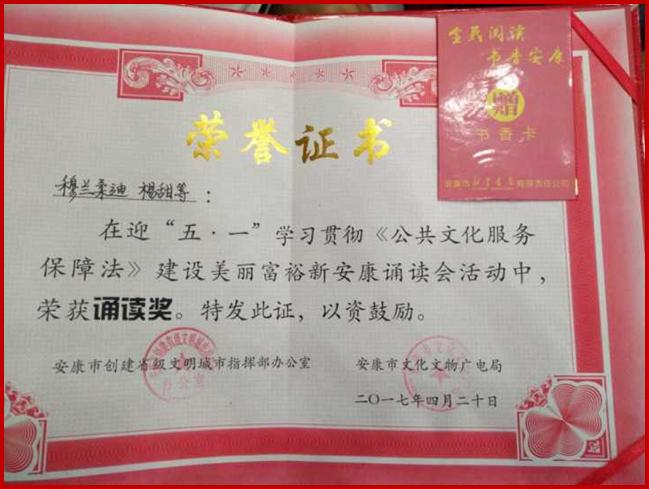 荣誉证书
全民阅读
书香安康
赠
书香卡
安康市新华书店有限责任公司
穆兰柔迪 杨甜等：
在迎“五·一”学习贯彻《公共文化服务
保障法》建设美丽富裕新安康诵读会活动中，
荣获诵读奖。特发此证，以资鼓励。
安康市创建省级文明城市指挥部办公室
安康市文化文物广电局
二〇一七年四月二十日